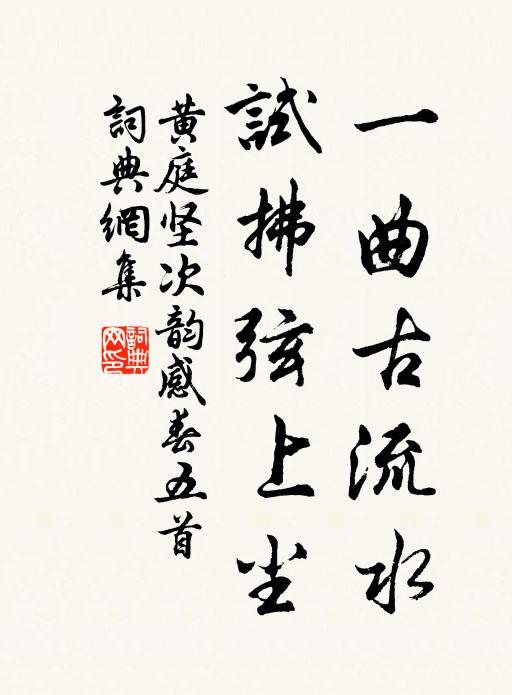 一曲古流水
試拂弦上尘
黄庭坚次韵感春五首
詞典網集
詞典網印